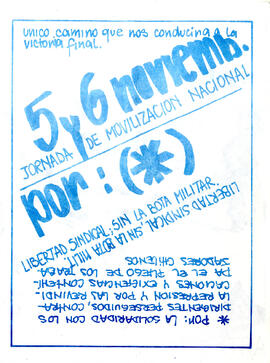 único camino que nos conducirá a la
victoria final.
5 y 6 noviemb.
JORNADA DE MOVILIZACIÓN NACIONAL
por: (*)
LIBERTAD SINDICAL; SIN LA BOTA MILITAR.
LIBERTAD SINDICAL SIN LA BOTA MILIT
* POR: LA SOLIDARIDAD CON LOS
DIRIGENTES PERSEGUIDOS, CONTRA
LA REPRESION Y POR LAS REVINDI-
CACIONES Y EXIGENCIAS CONTENI-
DA EL EL PLIEGO DE LOS TRABA-
JADORES CHILENOS